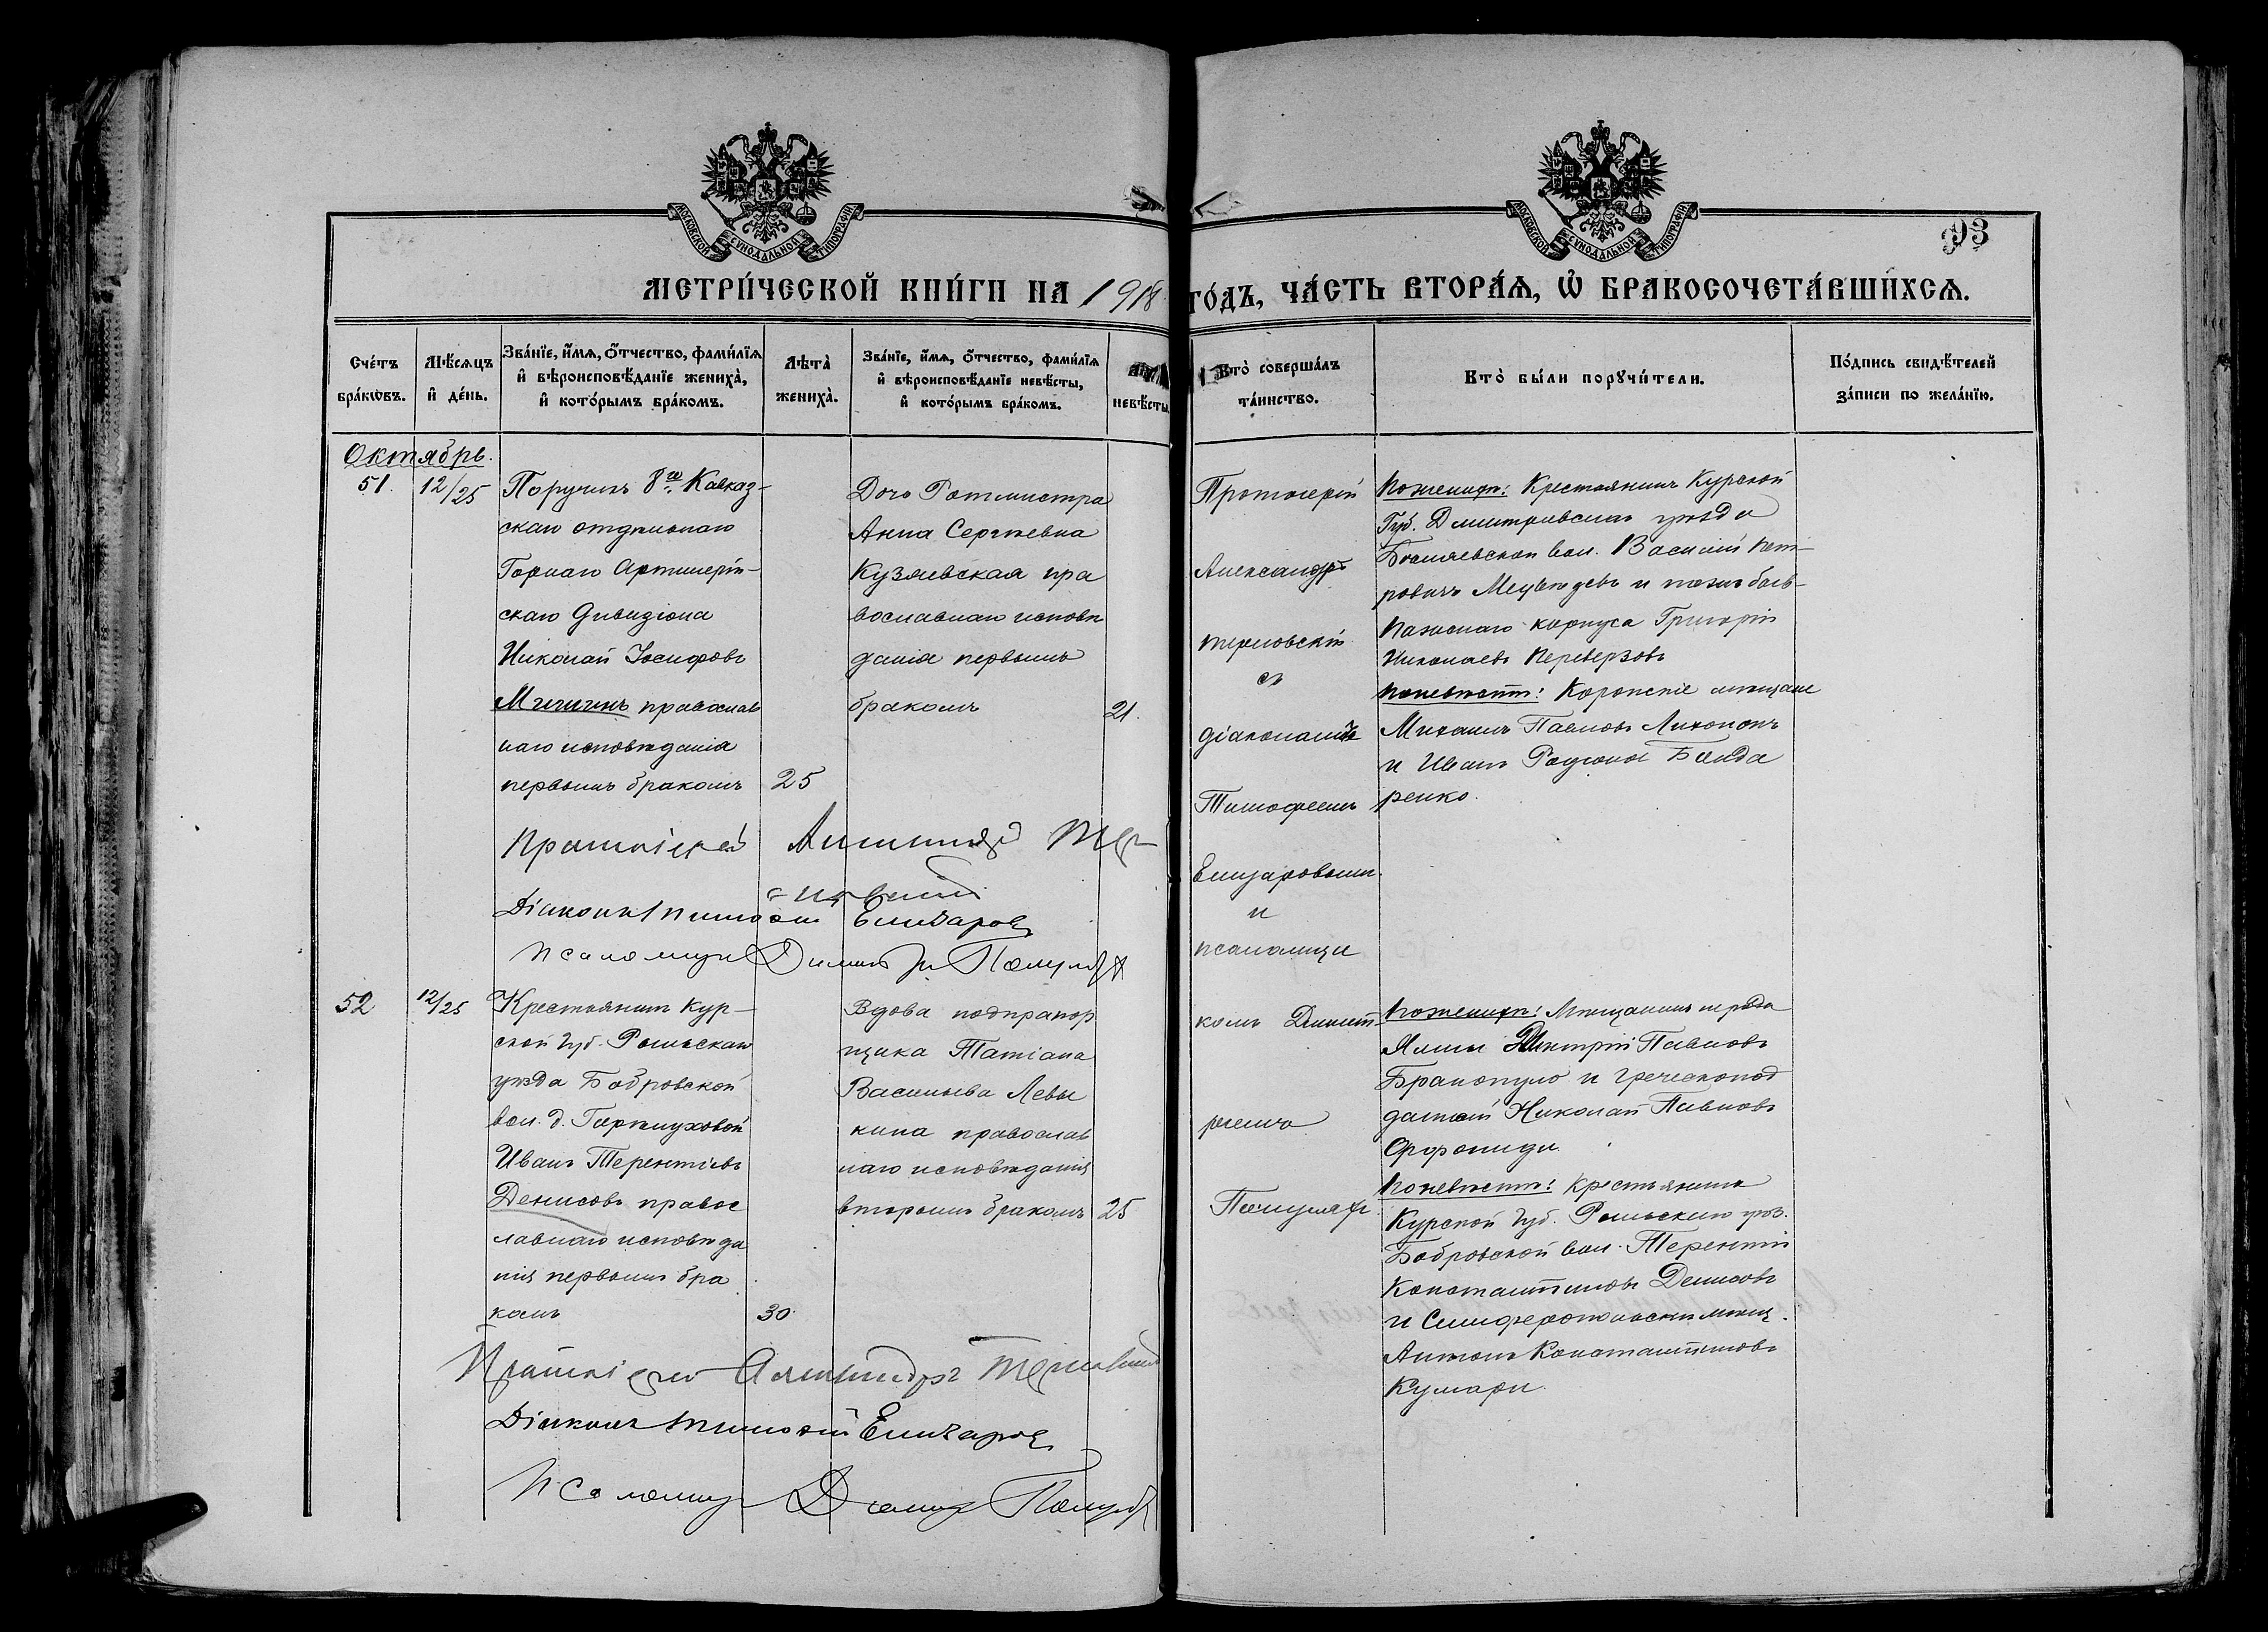 МОСКОВСКОЙ СѴНОДАЛЬНОЙ ТИПОГРАФІИ
МОСКОВСКОЙ СѴНОДАЛЬНОЙ ТИПОГРАФІИ
93
МЕТРИ́ЧЕСКОЙ КНИ́ГИ НА 1918 ГО́ДЪ, ЧА́СТЬ ВТОРА́Ѧ, Ѽ БРАКОСОЧЕТА́ВШИХСѦ.
Сче́тъ
бра́кѡвъ.
Мѣ́сѧцъ
и҆ де́нь.
Зва́нїе, и҆́мѧ, ѻ҆́тчество, фами́лїѧ
и҆ вѣроисповѣ́данїе жениха̀,
и҆ кото́рымъ бра́комъ.
Лѣта̀
жениха̀.
Зва́нїе, и҆́мѧ, ѻ҆́тчество, фами́лїѧ
и҆ вѣроисповѣ́данїе невѣ́сты,
и҆ кото́рымъ бра́комъ.
невѣ́сты.
Кто̀ соверша́лъ
та́инство.
Кто̀ бы́ли порꙋчи́тели.
По́дпись свидѣ́телей
за́писи по жела́нїю.
Октябрь.
51.
12/25
Поручикъ 8го Кавказ-
скаго отдѣльнаго
Горнаго Артилерій-
скаго Дивизіона
Николай Іосифовъ
православ
наго исповѣданія
первымъ бракомъ
25
Дочь Ротмистра
Анна Сергѣевна
Кузяевская пра
вославнаго исповѣ
данія первымъ
бракомъ
21.
Протоіерей
Александръ
Терновскій
съ
діакономъ
Тимофеемъ
Елизаровымъ
и
псаломщи
комъ Димит-
ріемъ
По женихѣ: Крестьянинъ Курской
Губ. Дмитріевскаго уѣзда
вол. Василій Пет-
ровичъ Медвѣдевъ и
Пажескаго корпуса Григорій
Николаевъ Переверзовъ
По невѣстѣ: Коропскіе мѣщане
Михаилъ Павловъ
и Иванъ Родіоновъ Бонда
ренко.
Протоіерей Александръ Тер-
новскій
Діаконъ Тимофей Елизаровъ
Псаломщикъ Димитрій
52
12/25
Крестьянинъ Кур-
ской Губ. Рыльскаго
уѣзда Бобровской
вол. д.
Иванъ Терентіевъ
Денисовъ правос
лавнаго исповѣда
нія первымъ бра
комъ
30
Вдова подпрапор
щика Татіана
Васильева Левы
кина православ
наго исповѣданія
вторымъ бракомъ
25
По женихѣ: Мѣщанинъ города
Ялты Дмитрій Павловъ
и греческопод
данный Николай Павловъ
По невѣстѣ: Крестьянинъ
Курской Губ. Рыльскаго уѣз.
Бобровской вол. Терентій
Константиновъ Денисовъ
и Симферопольскій мѣщ.
Антонъ Константиновъ
Протоіерей Александръ Терновскій
Діаконъ Тимофей Елизаровъ
Псаломщикъ